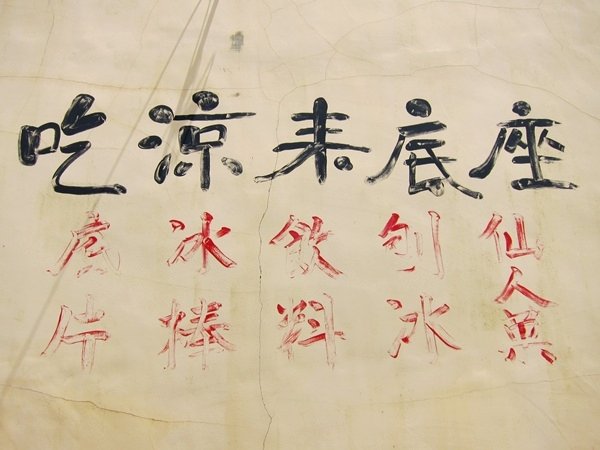 吃涼来底座
底片
冰棒
飲料
刨冰
仙人菓